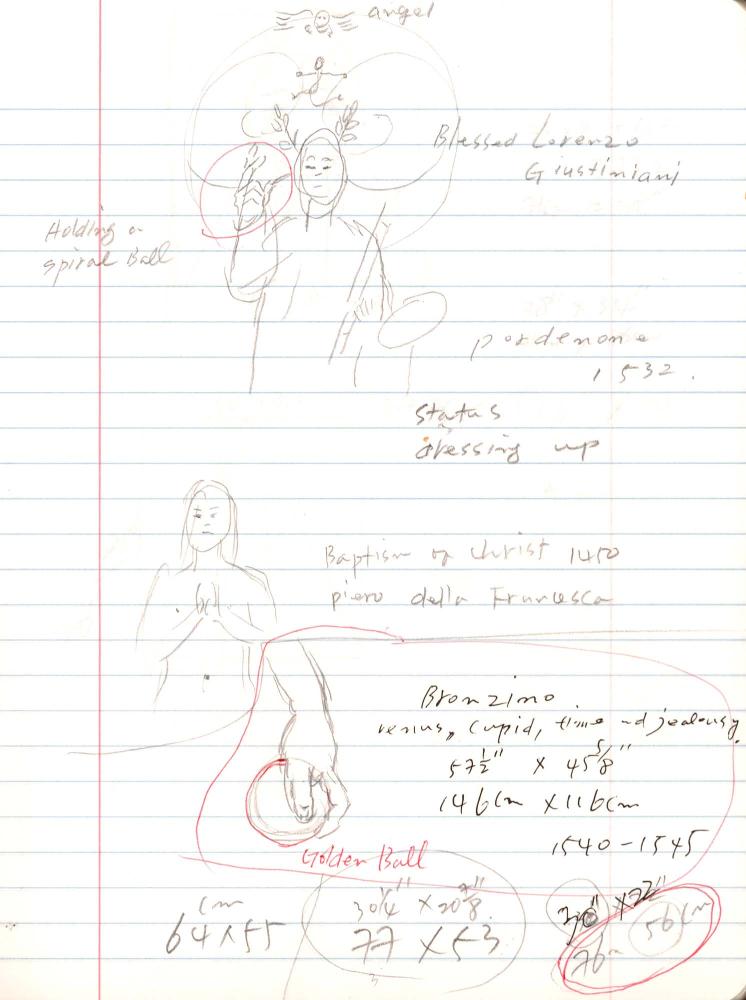 angel
Blessed Lorenzo
Giustiniani
Holding a
spiral Ball
pordenone
1532.
status
dressing up
Baptism of christ 1450
piero della Francesca
Bronzino
venus, Cupid, time nd jealousy.
57½" x 45⅝"
146cm x 116cm
1540-1545
Golden Ball
cm
64 x 55
30¼" x 20⅞"
77 x 53
56cm
76